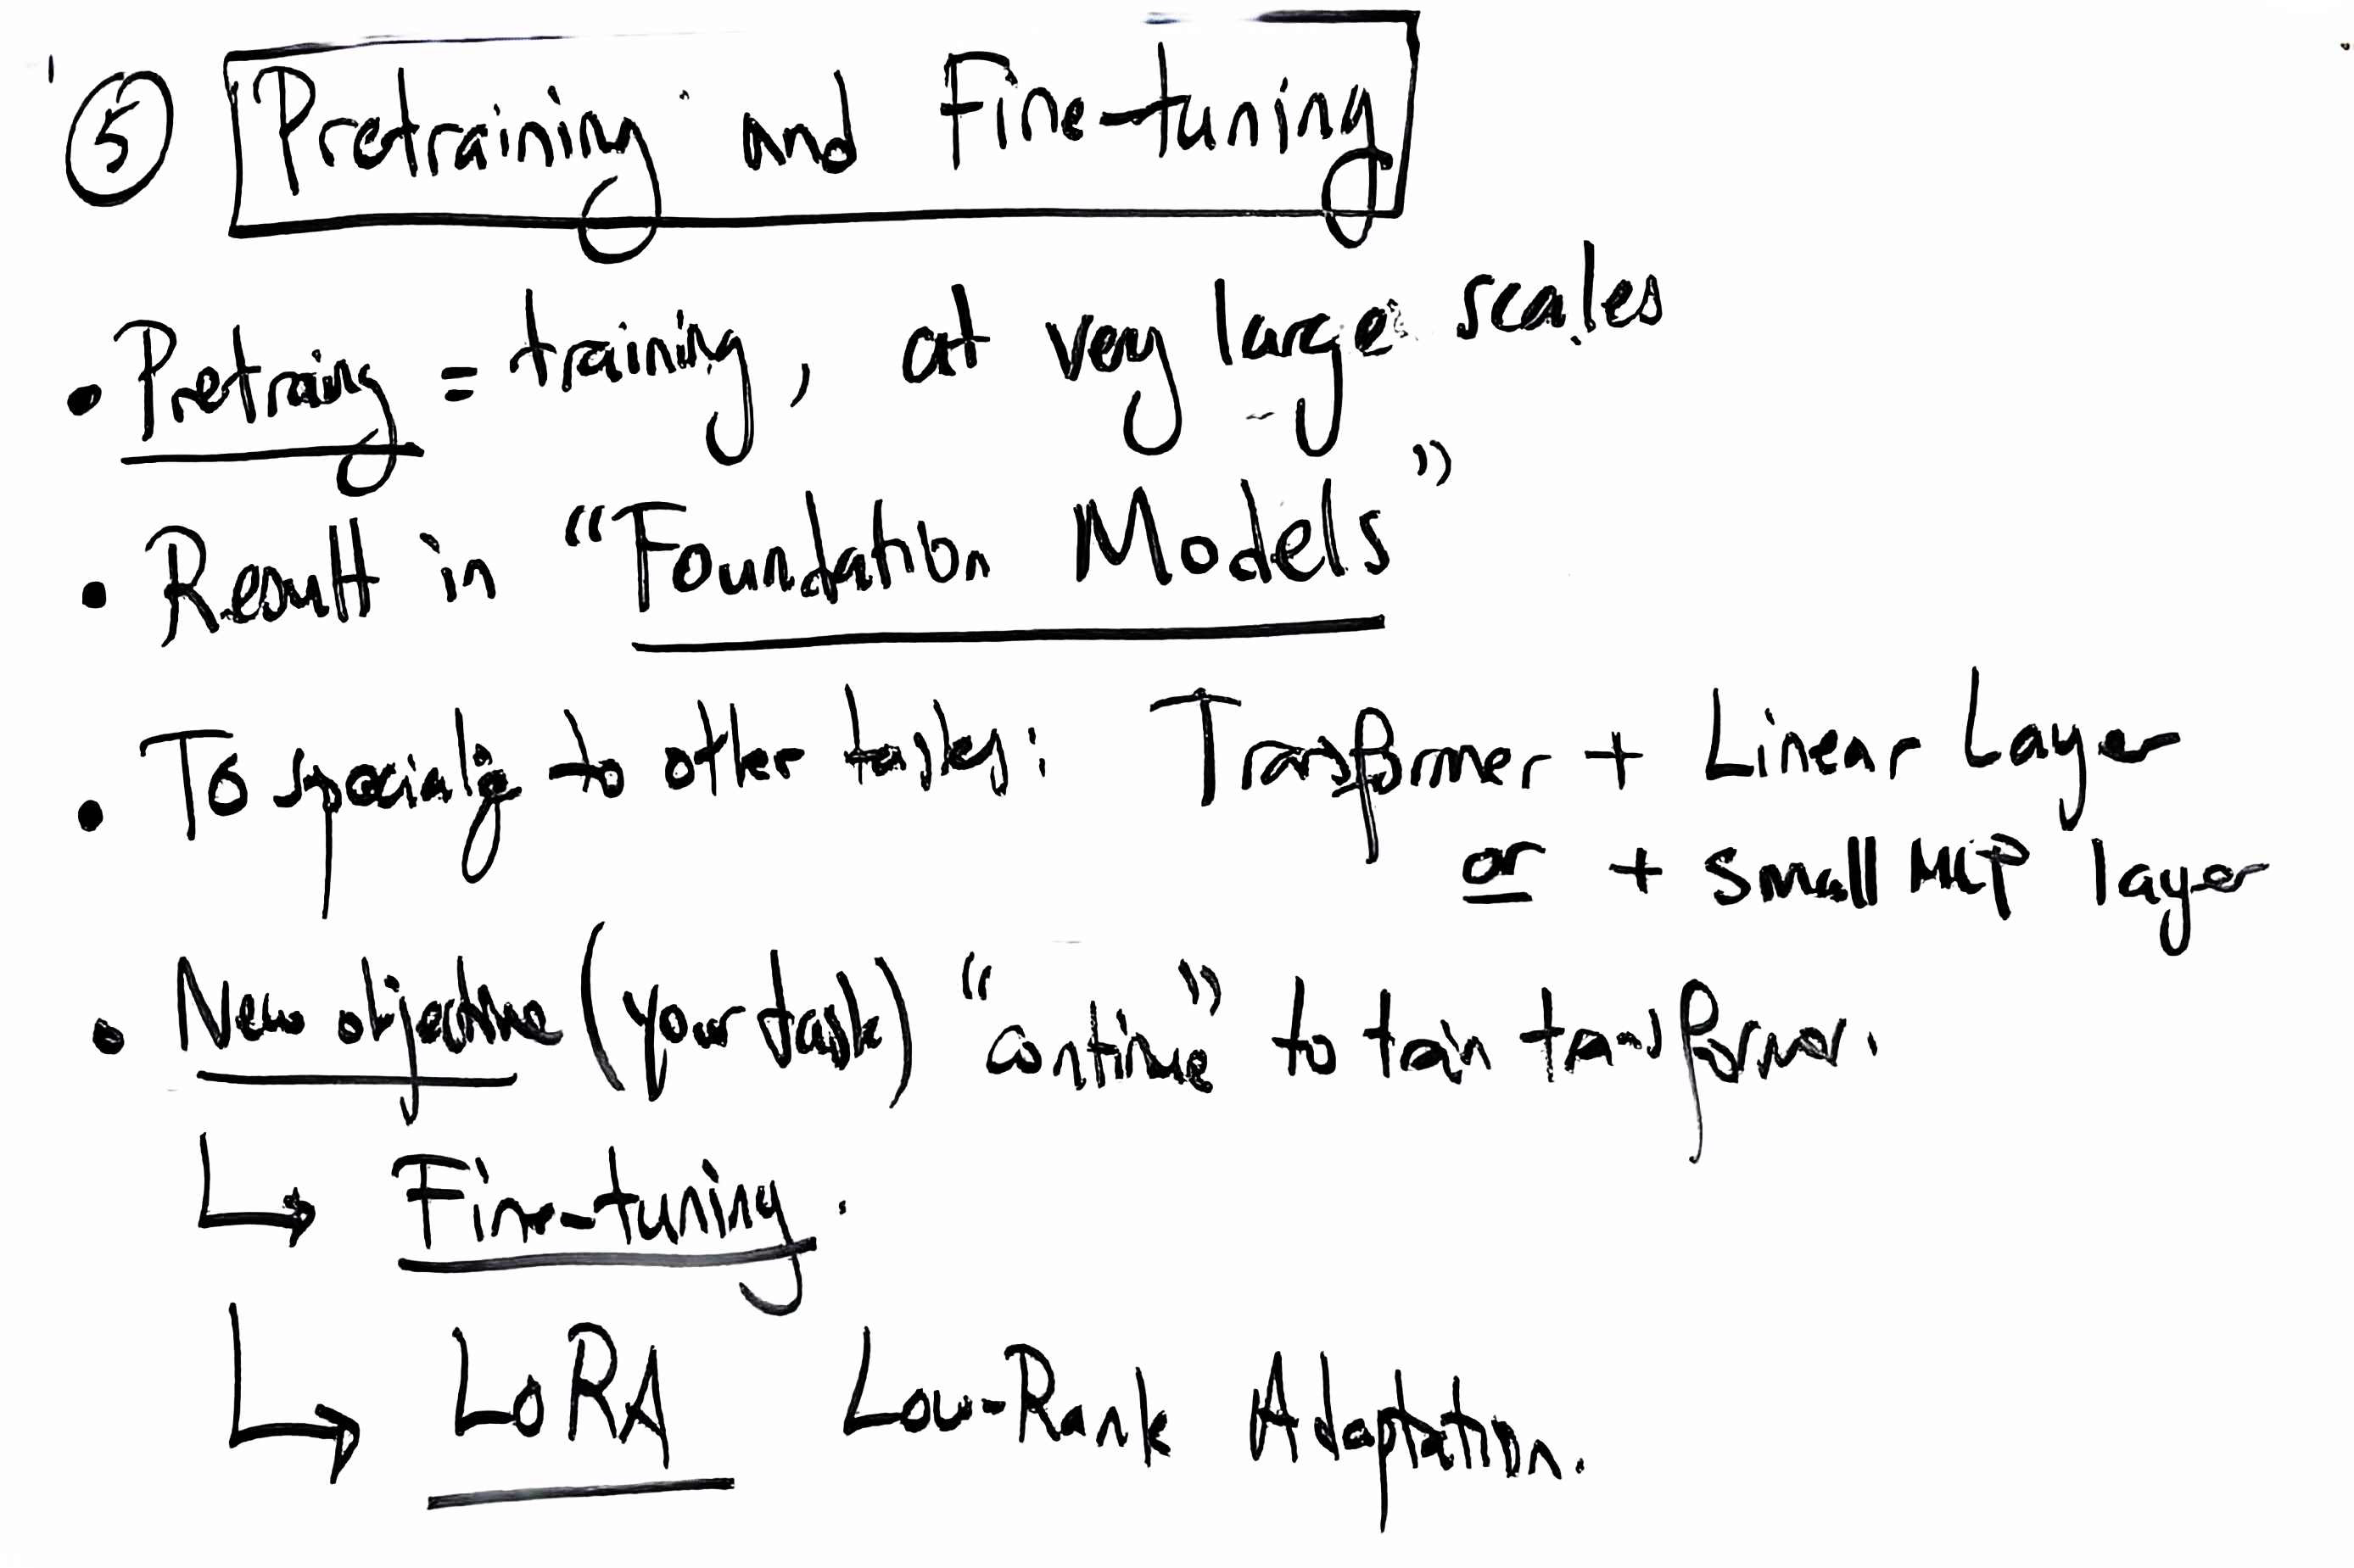 5 Pretraining and Fine-tuning
• Pretraing = training, at very large scales
• Result in "Foundation Models"
• To specialize to other tasks: Transformer + Linear Layer
or + small MLP layer
• New objective (your task) "continue" to train transformer.
↳ Fine-tuning.
↳ LoRA Low-Rank Adaptation.